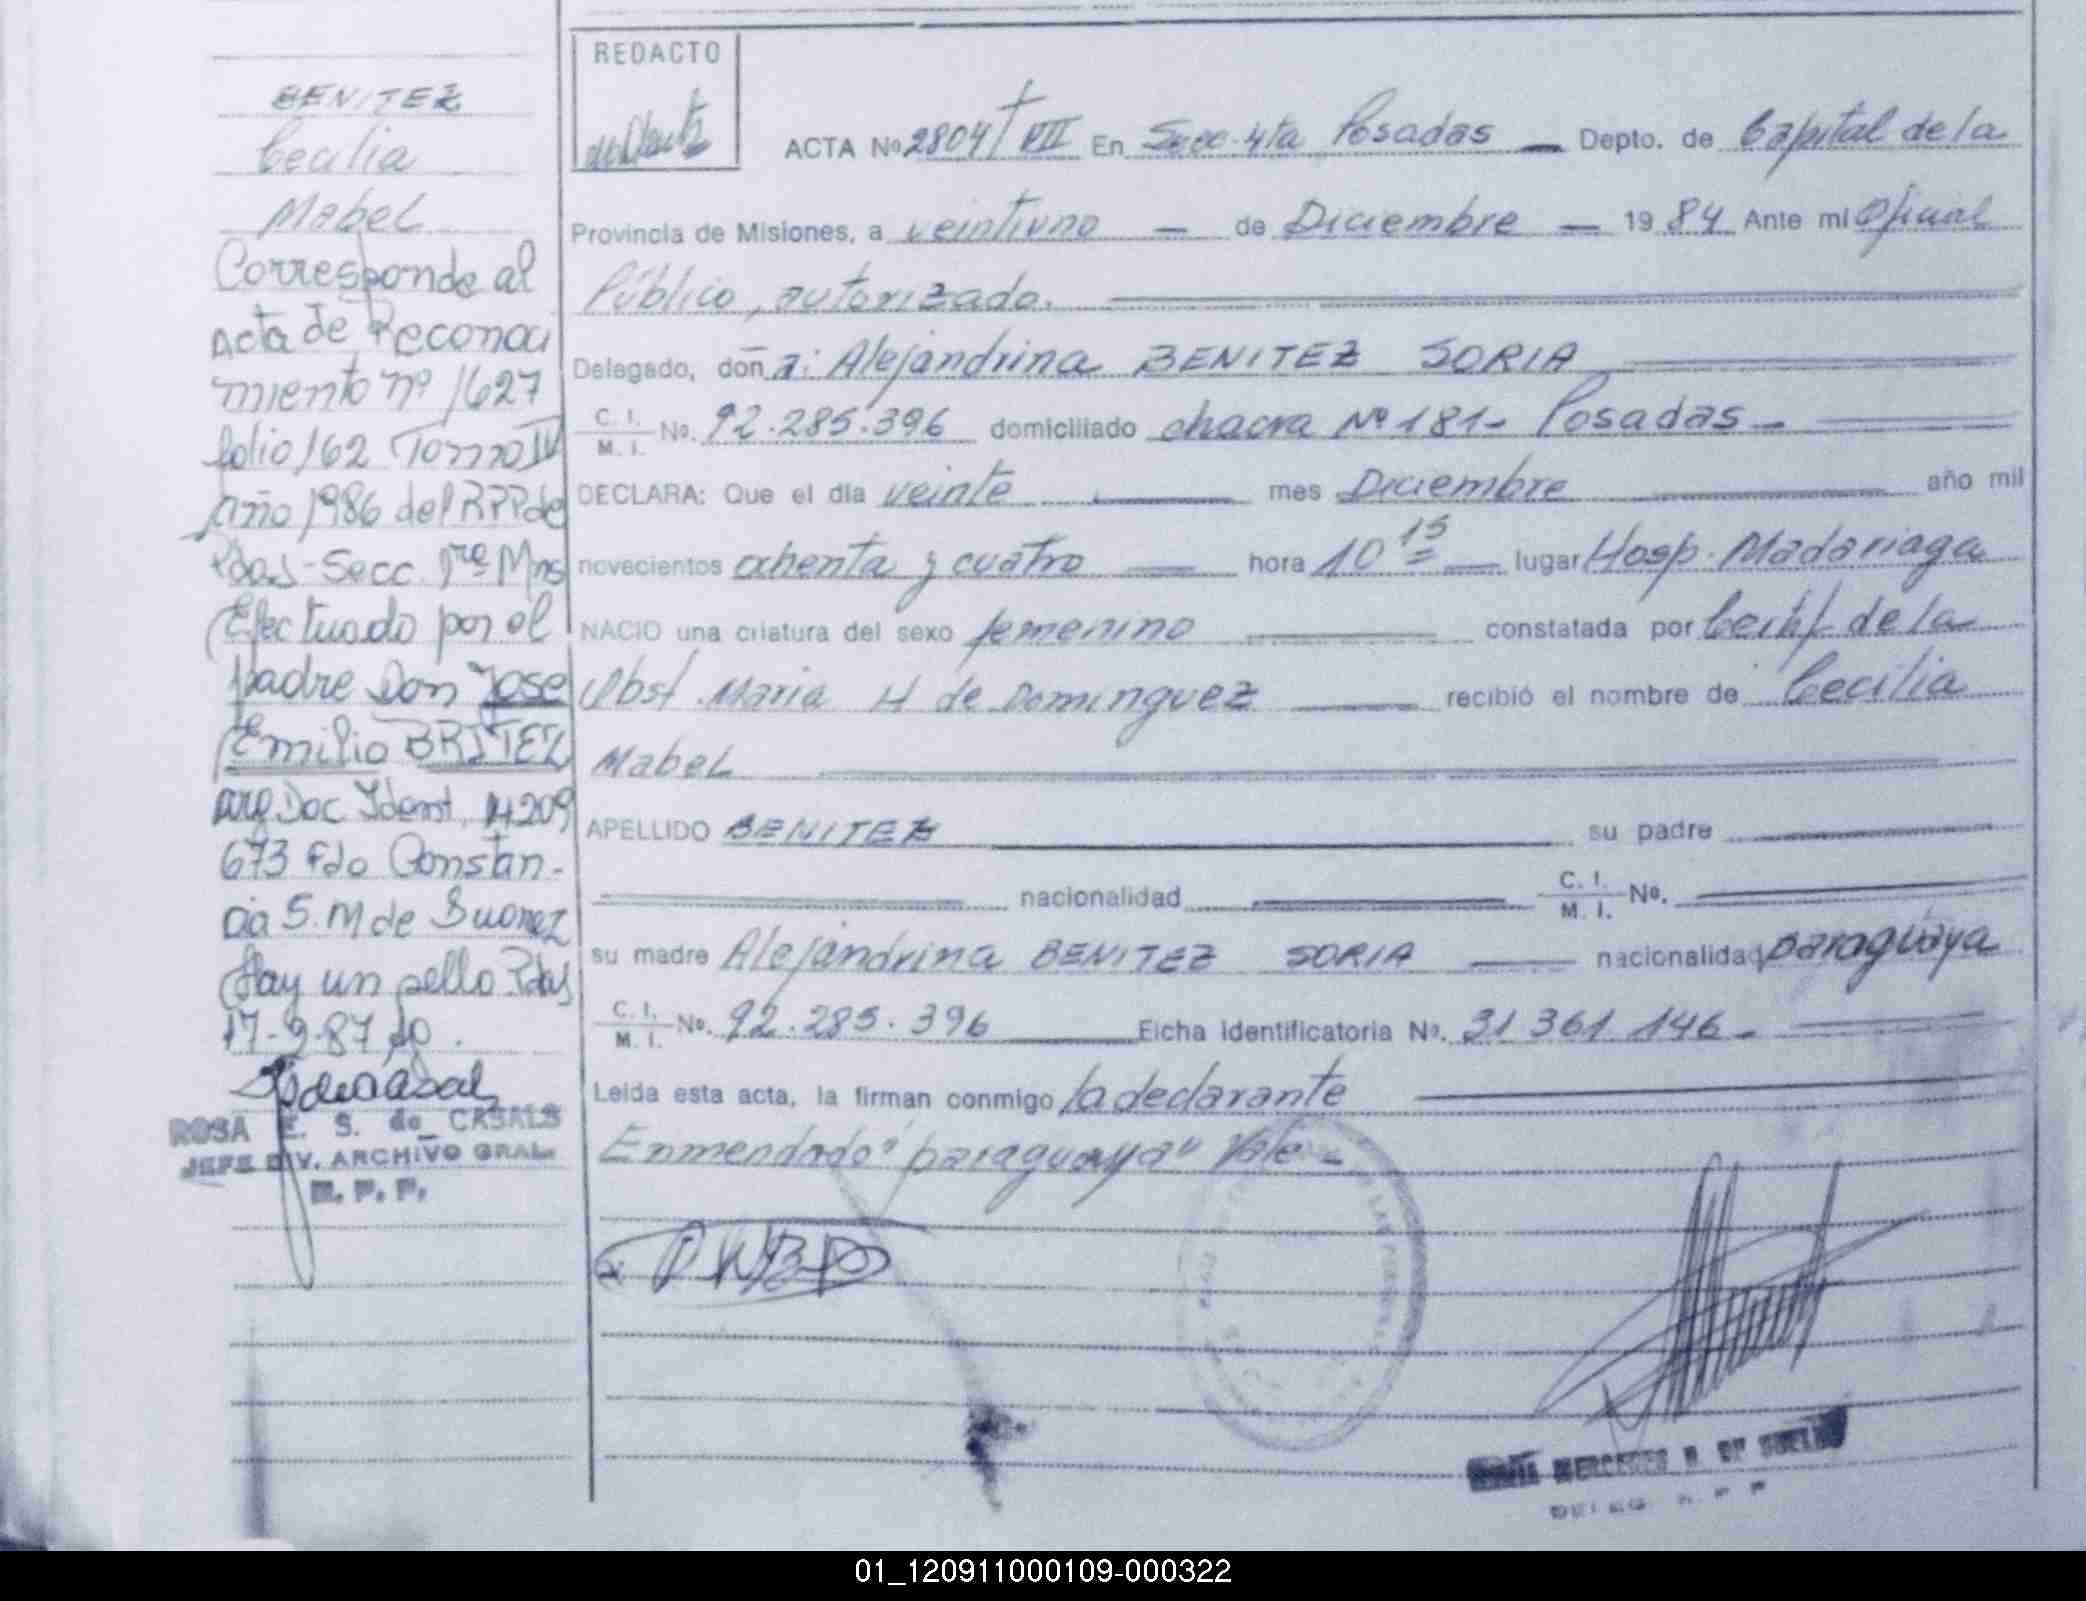 BENITEZ
Cecilia
Mabel
Corresponde al
acta de Reconoci
miento nº 1627
folio 162 Tomo IV
Año 1986 del RPP de
Pdas-Secc 1ra Mns
Efectuado por el
padre Don Jose
Emilio BRITEZ
arg Doc Ident. 14209
673 Fdo Constan-
cia S. M de Suarez
Hay un sello Pdas
17-9-87
ROSA E. S. de CASALS
JEFE DIV. ARCHIVO GRAL.
R. P. P.
REDACTO
ACTA Nº 2804 / VII En Secc. 4ta Posadas Depto. de Capital de la
Provincia de Misiones, a veintiuno de Diciembre 1984 Ante mi Oficial
Público, autorizado.
Delegado, doña: Alejandrina BENITEZ SORIA
C. I. M. I. No. 92.285.396 domiciliado chacra Nº 181- Posadas-
DECLARA: Que el día veinte mes Diciembre año mil
novecientos ochenta y cuatro hora 10 15 lugar Hosp. Madariaga
NACIO una criatura del sexo femenino constatada por Certif de la
Obst. Maria H de Dominguez recibió el nombre de Cecilia
Mabel
APELLIDO BENITEZ su padre
nacionalidad C. I. M. I. No.
su madre Alejandrina BENITEZ SORIA nacionalidad paraguaya
C. I. M. I. No. 92.285.396 Ficha Identificatoria No. 31 361 146-
Leida esta acta, la firman conmigo la declarante
Enmendado "paraguaya" Vale-
MERCEDES
01_120911000109-000322